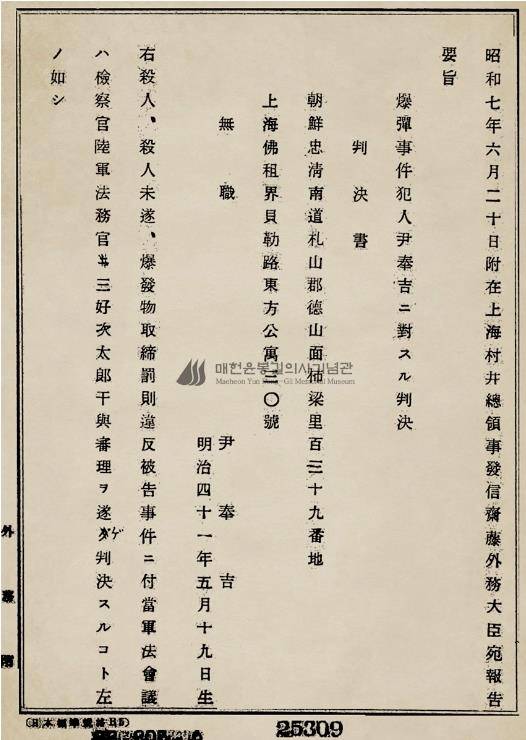 昭和七年六月二十日附在上海村井總領事發信齋藤外務大臣宛報告
要旨
爆彈事件犯人尹奉吉ニ對スル判決
判決書
朝鮮忠淸南道札山郡德山面柿梁里百三十九番地
上海佛租界貝勒路東方公寓三〇號
無職
尹奉吉
明治四十一年五月十九日生
右殺人、殺人未遂、爆發物取締罰則違反被告事件ニ付當軍法會議
ハ檢察官陸軍法務官三好次太郎干與審理ヲ遂ゲ判決スルコト左
ノ如シ
매헌윤봉길의사기념관
Maeheon Yun Bong-Gil Memorial Museum
外務
日本標準規格B5
25309